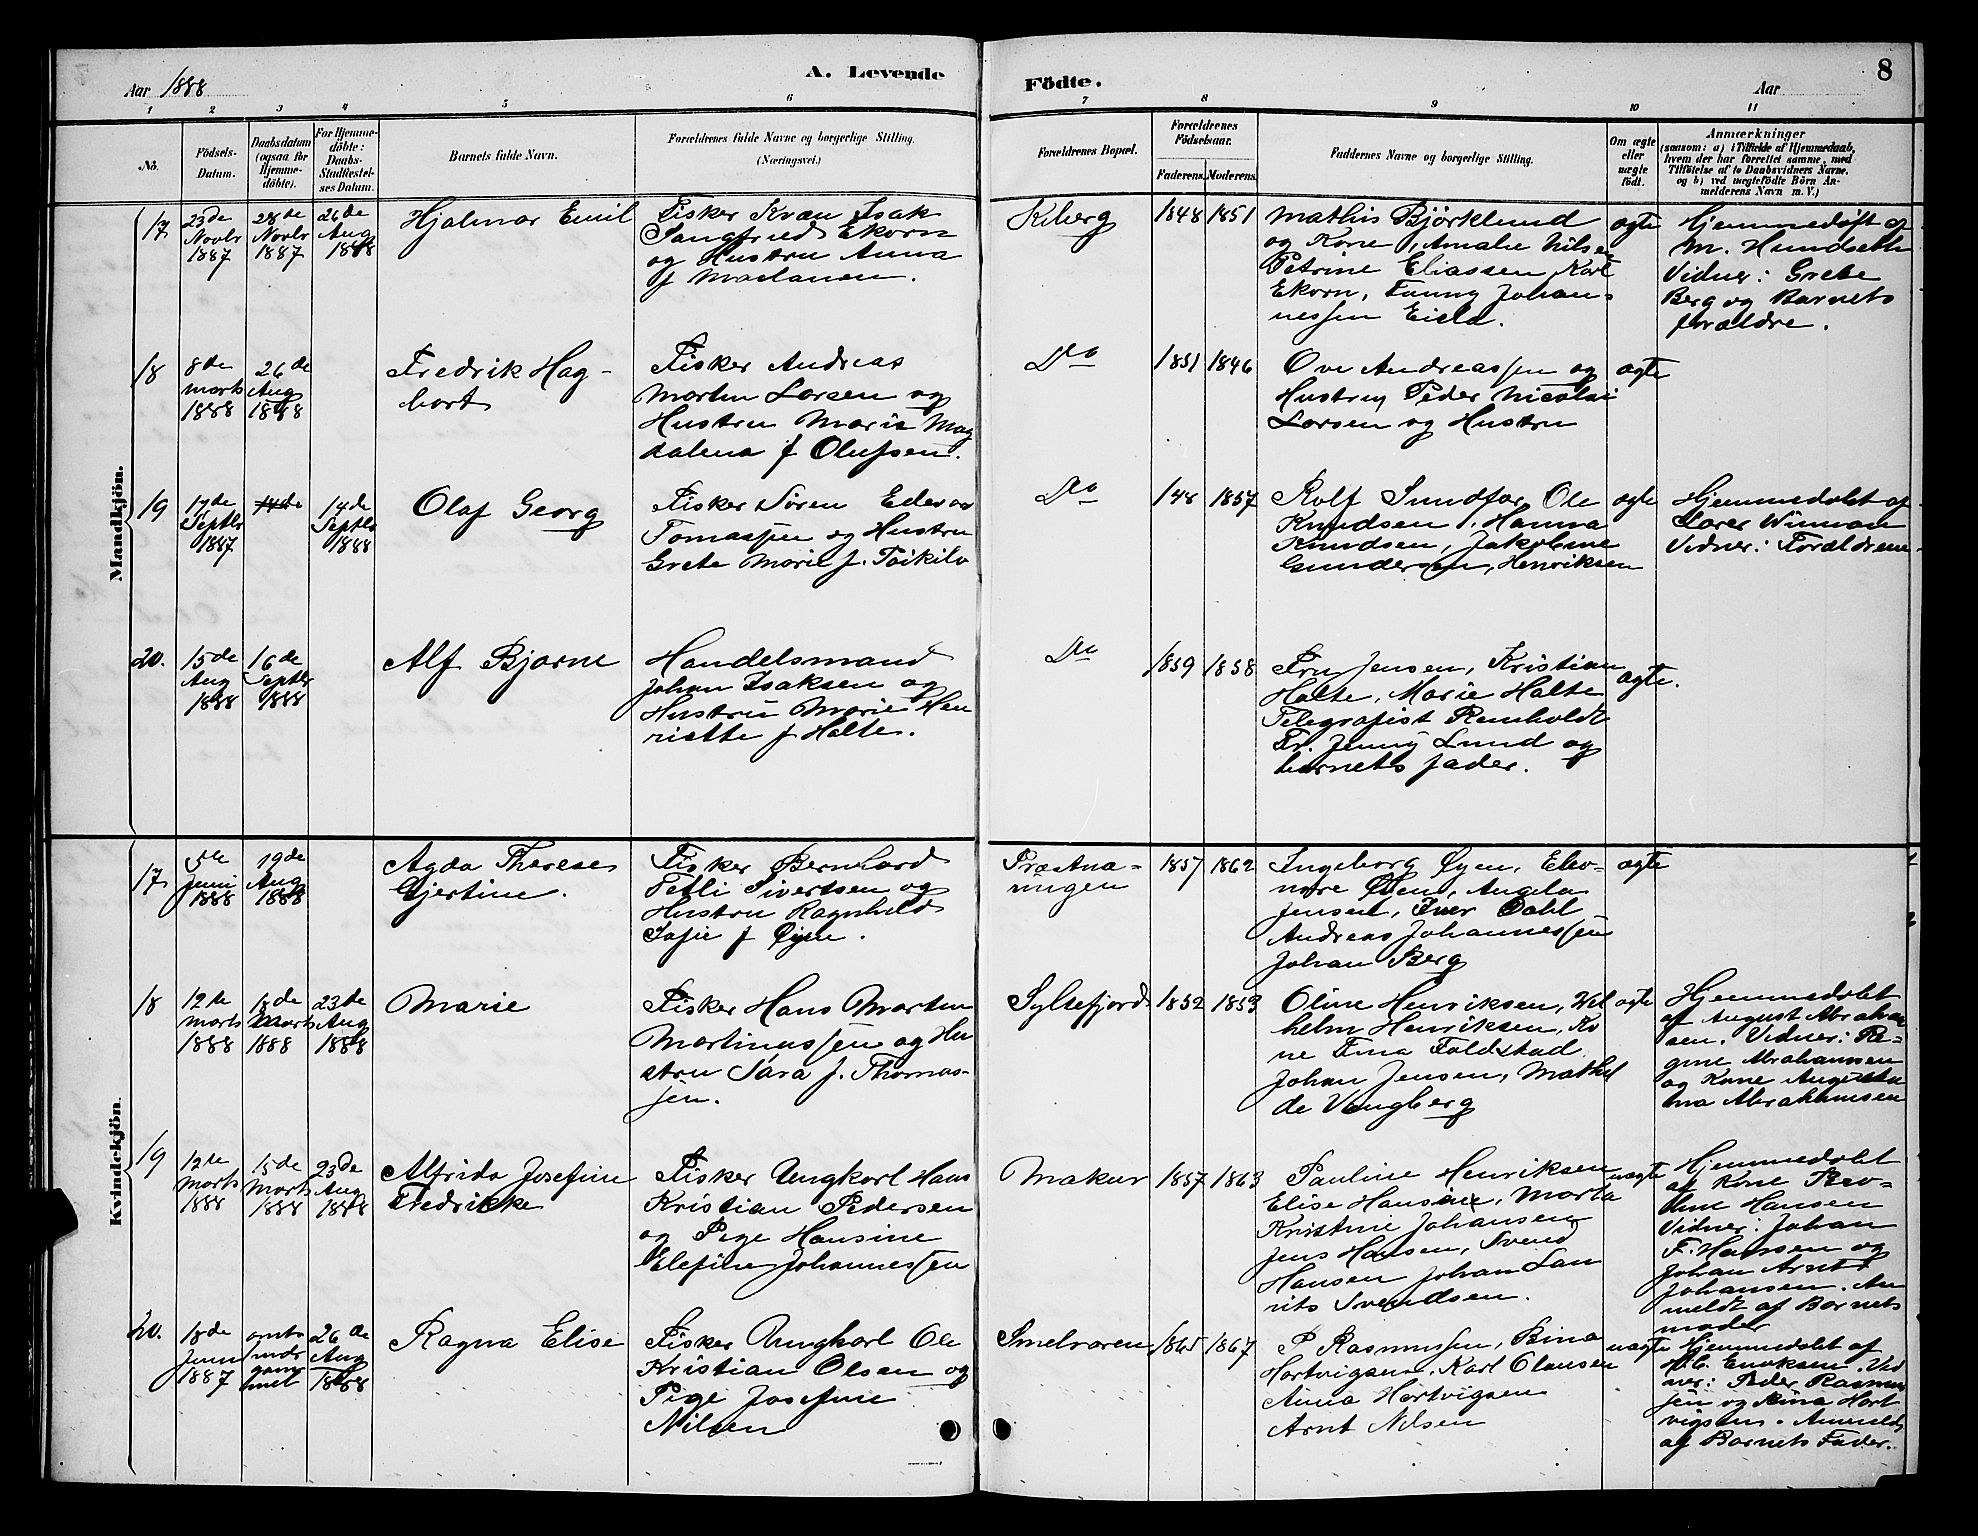 Aar 1888
A. Levende
Födte.
Aar
8
1 2 3 4 5 6 7 8 9 10 11
No.
Födsels-
Datum.
Daabsdatum
(ogsaa for
Hjemme-
döbte).
For Hjemme-
döbte:
Daabs-
Stadfæstel-
ses Datum.
Barnets fulde Navn.
Forældrenes fulde Navne og borgerlige Stilling.
(Næringsvei.)
Forældrenes Bopæl.
Forældrenes
Födselsaar.
Faderens. Moderens.
Faddernes Navne og borgerlige Stilling.
Om ægte
eller
uægte
födt.
Anmærkninger
(saasom: a) i Tilfælde af Hjemmedaab,
hvem der har forrettet samme, med
Tilföielse af to Daabsvidners Navne.
og b) ved uægtefödte Börn An-
melderens Navn m. V.)
Mandkjön.
17
23de
Novbr
1887
28de
Novbr
1887
26de
Aug
1888
Hjalmar Emil
Fisker Kvæn Isak
Sangfried Ekorn
og Hustru Anna
f
Kiberg
1848 1851
Mathis Björklund
og Kone, Amalie Nilsen
Petrine Eliassen, Karl
Ekorn, Fanny Johan-
nessen
ægte
Hjemmedøft af
M.
Vidner: Grete
Berg og Barnets
forældre.
18
8de
Marts
1888
26de
Aug
1888
Fredrik Hag-
bart
Fisker Andreas
Martin Larsen og
Hustru Marie Mag
dalena f Olufsen.
Do
1851 1846
Ove Andreassen og
Hustru Peder Nicolai
Larsen og Hustru
ægte
19
17de
Septbr
1887
14de
14de
Septbr
1888
Olaf Georg
Fisker Søren
Tomassen og Hustru
Grete Marie f.
Do
/48 1857
Rolf Sundfær, Ole
Knudsen, Hanna
Knudsen, Jakobine
Gundersen, Henriksen
ægte
Hjemmedøbt af
Vidner: Forældrene.
20.
15de
Aug
1888
16de
Septbr
1888
Alf Bjarne
Handelsmand
Johan Isaksen og
Hustru Marie Hen
riette f Halte.
Do
1859 1858
Fru Jensen, Kristian
Halte, Marie Halte
Telegrafist Remholdt
Fr. Jenny Lund og
barnets fader.
ægte.
Kvindekjön.
17
5te
Juni
1888
19de
Aug
1888
Agda Therese
Gjertine.
Fisker Bernhard
Sivertsen og
Hustru Ragnhild
Sofie f Øyen.
Præstna-
ringen
1857 1862
Ingeborg Øyen, Eleo-
nore Øyen, Angela
Jensen, Iver Dahl
Andreas Johannessen
Johan Berg
ægte
18
12te
Marts
1888
18de
Marts
1888
23de
Aug
1888
Marie
Fisker Hans Martin
Martinussen og Hu
stru Sara f. Thomas-
sen.
Syltefjord
1852 1853
Oline Henriksen, Wil
helm Henriksen, Ko
ne Tina Foldstad
Johan Jensen, Mathil
de Vengberg
ægte
Hjemmedøbt
af August Abraham
sen. Vidner: Re-
gine Abrahamsen
og Kone Augusta
Abrahamsen
19
12te
Marts
1888
15de
Marts
1888
23de
Aug
1888
Alfrida Josefine
Fredrikke
Fisker Ungkarl Hans
Kristian Pedersen
og Pige Hansine
Elefine Johannessen
Makur
1857 1863
Pauline Henriksen
Elise Hansine, Marta
Kristine Johansen
Jens Hansen, Svend
Hansen Johan Lau
rits Svendsen.
uægte
Hjemmedøbt
af Kone
Hansen
Vidner: Johan
F. Hansen og
Johan Arnt
Johansen. An
meldt af Barnets
moder
20.
18de
Juni
1887
26de
Aug
1888
Ragna Elise
Fisker Ungkarl Ole
Kristian Olsen og
Pige Josefine
Nilsen
Smelroren
1865 1867
P Rasmussen, Bina
Hartvigsen, Karl Olausen
Anna Hartvigsen
Arnt Nilsen
uægte
Hjemmedøbt af
H.C. Enoksen. Vid
ner: Peder Rasmus
sen og Bina Hart
vigsen. Anmeldt
af Barnets Fader.